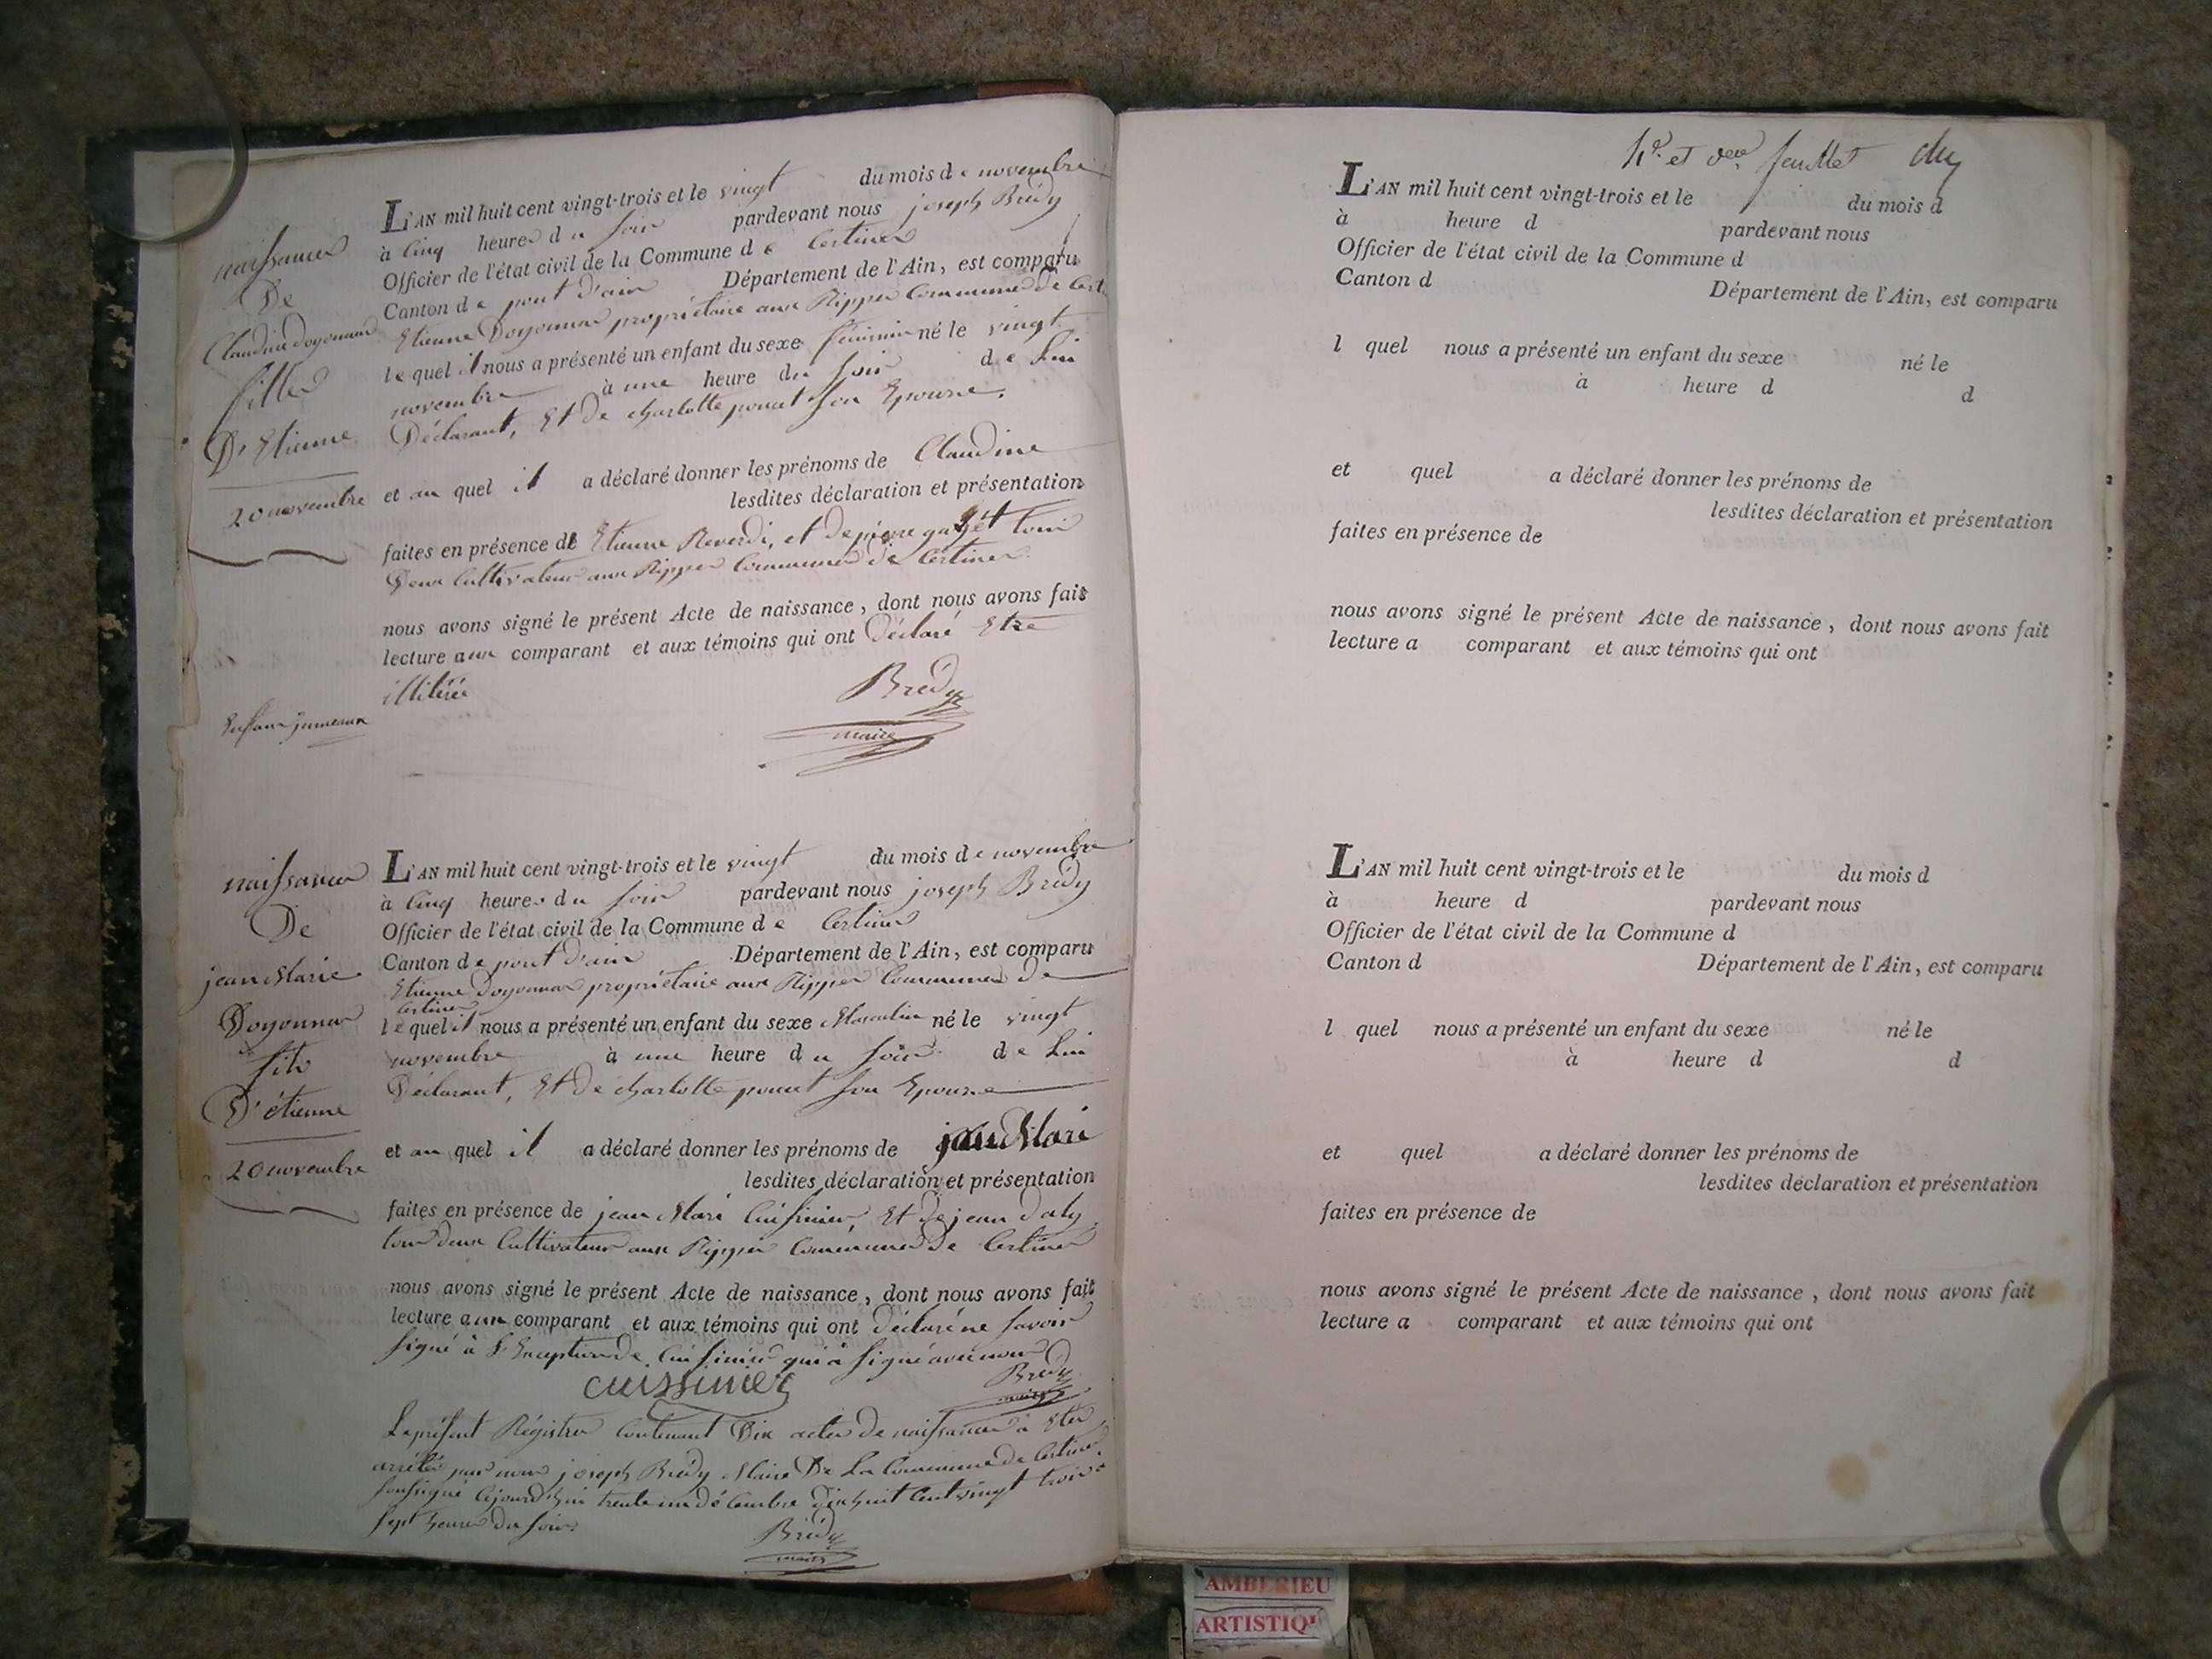 naissance
De
Claudine doyonnax
fille
D'Etienne
20 novembre
Enfans jumeaux
L'AN mil huit cent vingt-trois et le vingt du mois de novembre
à Cinq heures du soir pardevant nous joseph Brédy
Officier de l'état civil de la Commune de Certines
Canton de pont d'ain Département de l'Ain, est comparu
Etienne Doyonnax propriétaire aux Rippes Commune de Cert.
le quel il nous a présenté un enfant du sexe féminin né le vingt
novembre à une heure du soir de Lui
Déclarant, Et De charlotte poncet son Epouse.
et au quel il a déclaré donner les prénoms de Claudine
lesdites déclaration et présentation
faites en présence de Etienne Reverdi, et de pierre tous
Deux Cultivateurs aux Rippes Commune de Certines
nous avons signé le présent Acte de naissance, dont nous avons fait
lecture aux comparant et aux témoins qui ont Déclaré Etre
illitérés
Brédy
maire
naissance
De
jean Marie
Doyonnax
fils
D'étienne
20 novembre
L'AN mil huit cent vingt-trois et le vingt du mois de novembre
à Cinq heures du soir pardevant nous joseph Brédy
Officier de l'état civil de la Commune de Certines
Canton de pont d'ain Département de l'Ain, est comparu
Etienne Doyonnax propriétaire aux Rippes Commune de
Certines
le quel il nous a présenté un enfant du sexe Masculin né le vingt
novembre à une heure du soir de Lui
Déclarant, Et De charlotte poncet son Epouse
et au quel il a déclaré donner les prénoms de jean Mari
lesdites déclaration et présentation
faites en présence de jean Mari Cuisinier, Et de jean
tous deux Cultivateurs aux Rippes Commune de Certines
nous avons signé le présent Acte de naissance, dont nous avons fait
lecture aux comparant et aux témoins qui ont Déclaré ne savoir
signé à L'Exception de Cuisinier qui a signé avec nous
cuissinier
Brédy
maire
Le présent Régistre Contenant Dix actes de naissance à Eté
arrêté par nous joseph Brédy Maire De La Commune de Certines
soussigné Cejourd'hui trente un décembre dix huit Cent vingt trois à
sept heures du soir
Brédy
maire
feuillet
L'AN mil huit cent vingt-trois et le du mois d
à heure d pardevant nous
Officier de l'état civil de la Commune d
Canton d Département de l'Ain, est comparu
l quel nous a présenté un enfant du sexe né le
à heure d d
et quel a déclaré donner les prénoms de
lesdites déclaration et présentation
faites en présence de
nous avons signé le présent Acte de naissance, dont nous avons fait
lecture a comparant et aux témoins qui ont
L'AN mil huit cent vingt-trois et le du mois d
à heure d pardevant nous
Officier de l'état civil de la Commune d
Canton d Département de l'Ain, est comparu
l quel nous a présenté un enfant du sexe né le
à heure d d
et quel a déclaré donner les prénoms de
lesdites déclaration et présentation
faites en présence de
nous avons signé le présent Acte de naissance, dont nous avons fait
lecture a comparant et aux témoins qui ont
AMBERIEU
ARTISTIQU